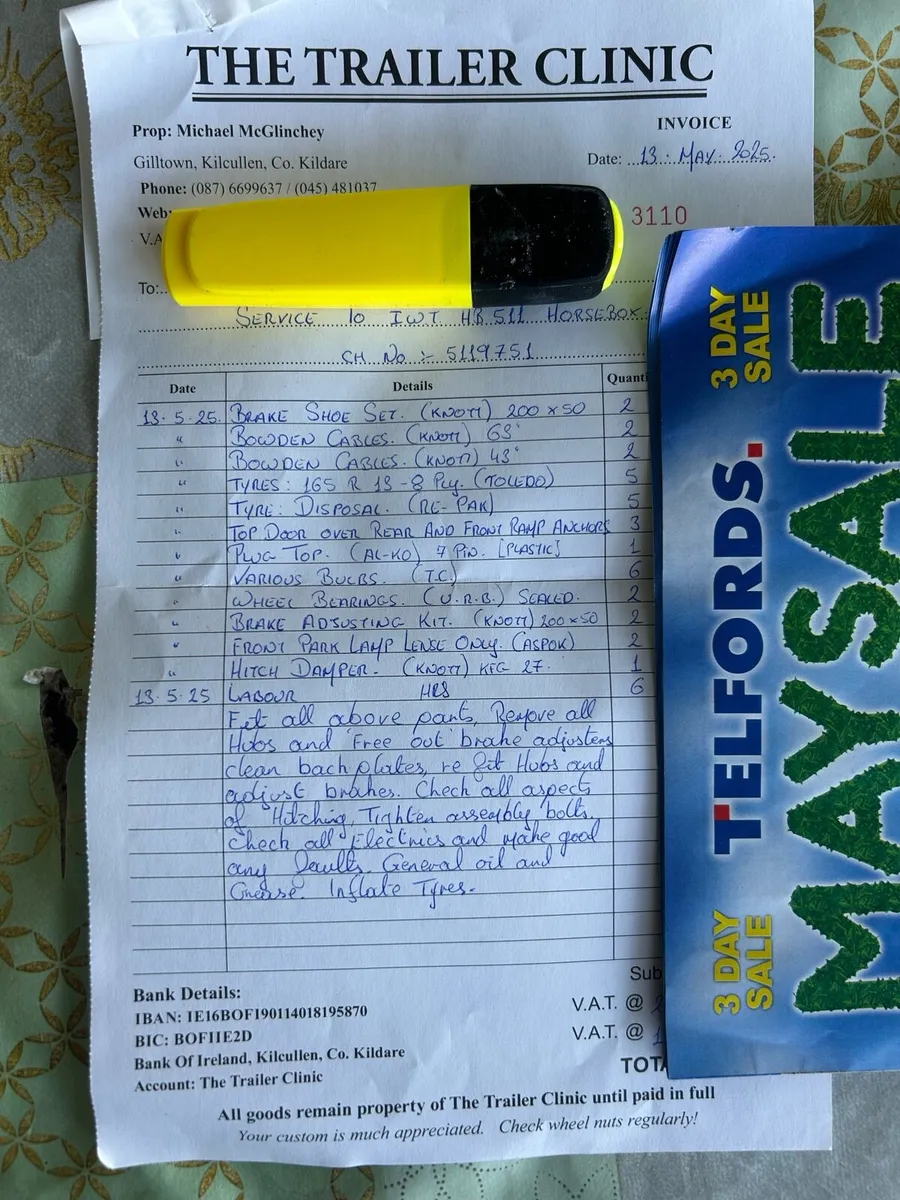 THE TRAILER CLINIC
Prop: Michael McGlinchey
INVOICE
Gilltown, Kilcullen, Co. Kildare
Date: 13 . MAY . 2025.
Phone: (087) 6699637 / (045) 481037
Web:
3110
V.A
To:
SERVICE TO IWT HB 511 HORSEBOX.
CH No :- 5119751
Date Details Quanti
13.5.25. BRAKE SHOE SET. (KNOTT) 200 x 50 2
" BOWDEN CABLES. (KNOTT) 63" 2
" BOWDEN CABLES. (KNOTT) 43" 2
" TYRES: 165 R 13 - 8 Ply. (TOLEDO) 5
" TYRE: DISPOSAL. (RE-PAK) 5
" TOP DOOR OVER REAR AND FRONT RAMP ANCHORS 3
" PLUG TOP. (AL-KO) 7 PIN. [PLASTIC] 1
" VARIOUS BULBS. (T.C.) 6
" WHEEL BEARINGS. (U.R.B.) SEALED. 2
" BRAKE ADJUSTING KIT. (KNOTT) 200x50 2
" FRONT PARK LAMP LENSE ONLY. (ASPOK) 2
" HITCH DAMPER. (KNOTT) KFG 27. 1
13.5.25 LABOUR HRS 6
Fit all above parts, Remove all
Hubs and "Free out" brake adjusters
clean back plates, re fit Hubs and
adjust brakes. Check all aspects
of "Hitching, Tighten assembly bolts.
Check all Electrics and make good
any faults. General oil and
Grease. Inflate Tyres.
Sub
Bank Details:
IBAN: IE16BOFI90114018195870
V.A.T. @
BIC: BOFIIE2D
V.A.T. @
Bank Of Ireland, Kilcullen, Co. Kildare
TOTA
Account: The Trailer Clinic
All goods remain property of The Trailer Clinic until paid in full
Your custom is much appreciated. Check wheel nuts regularly!
3 DAY SALE
3 DAY SALE
TELFORDS.
MAY SALE